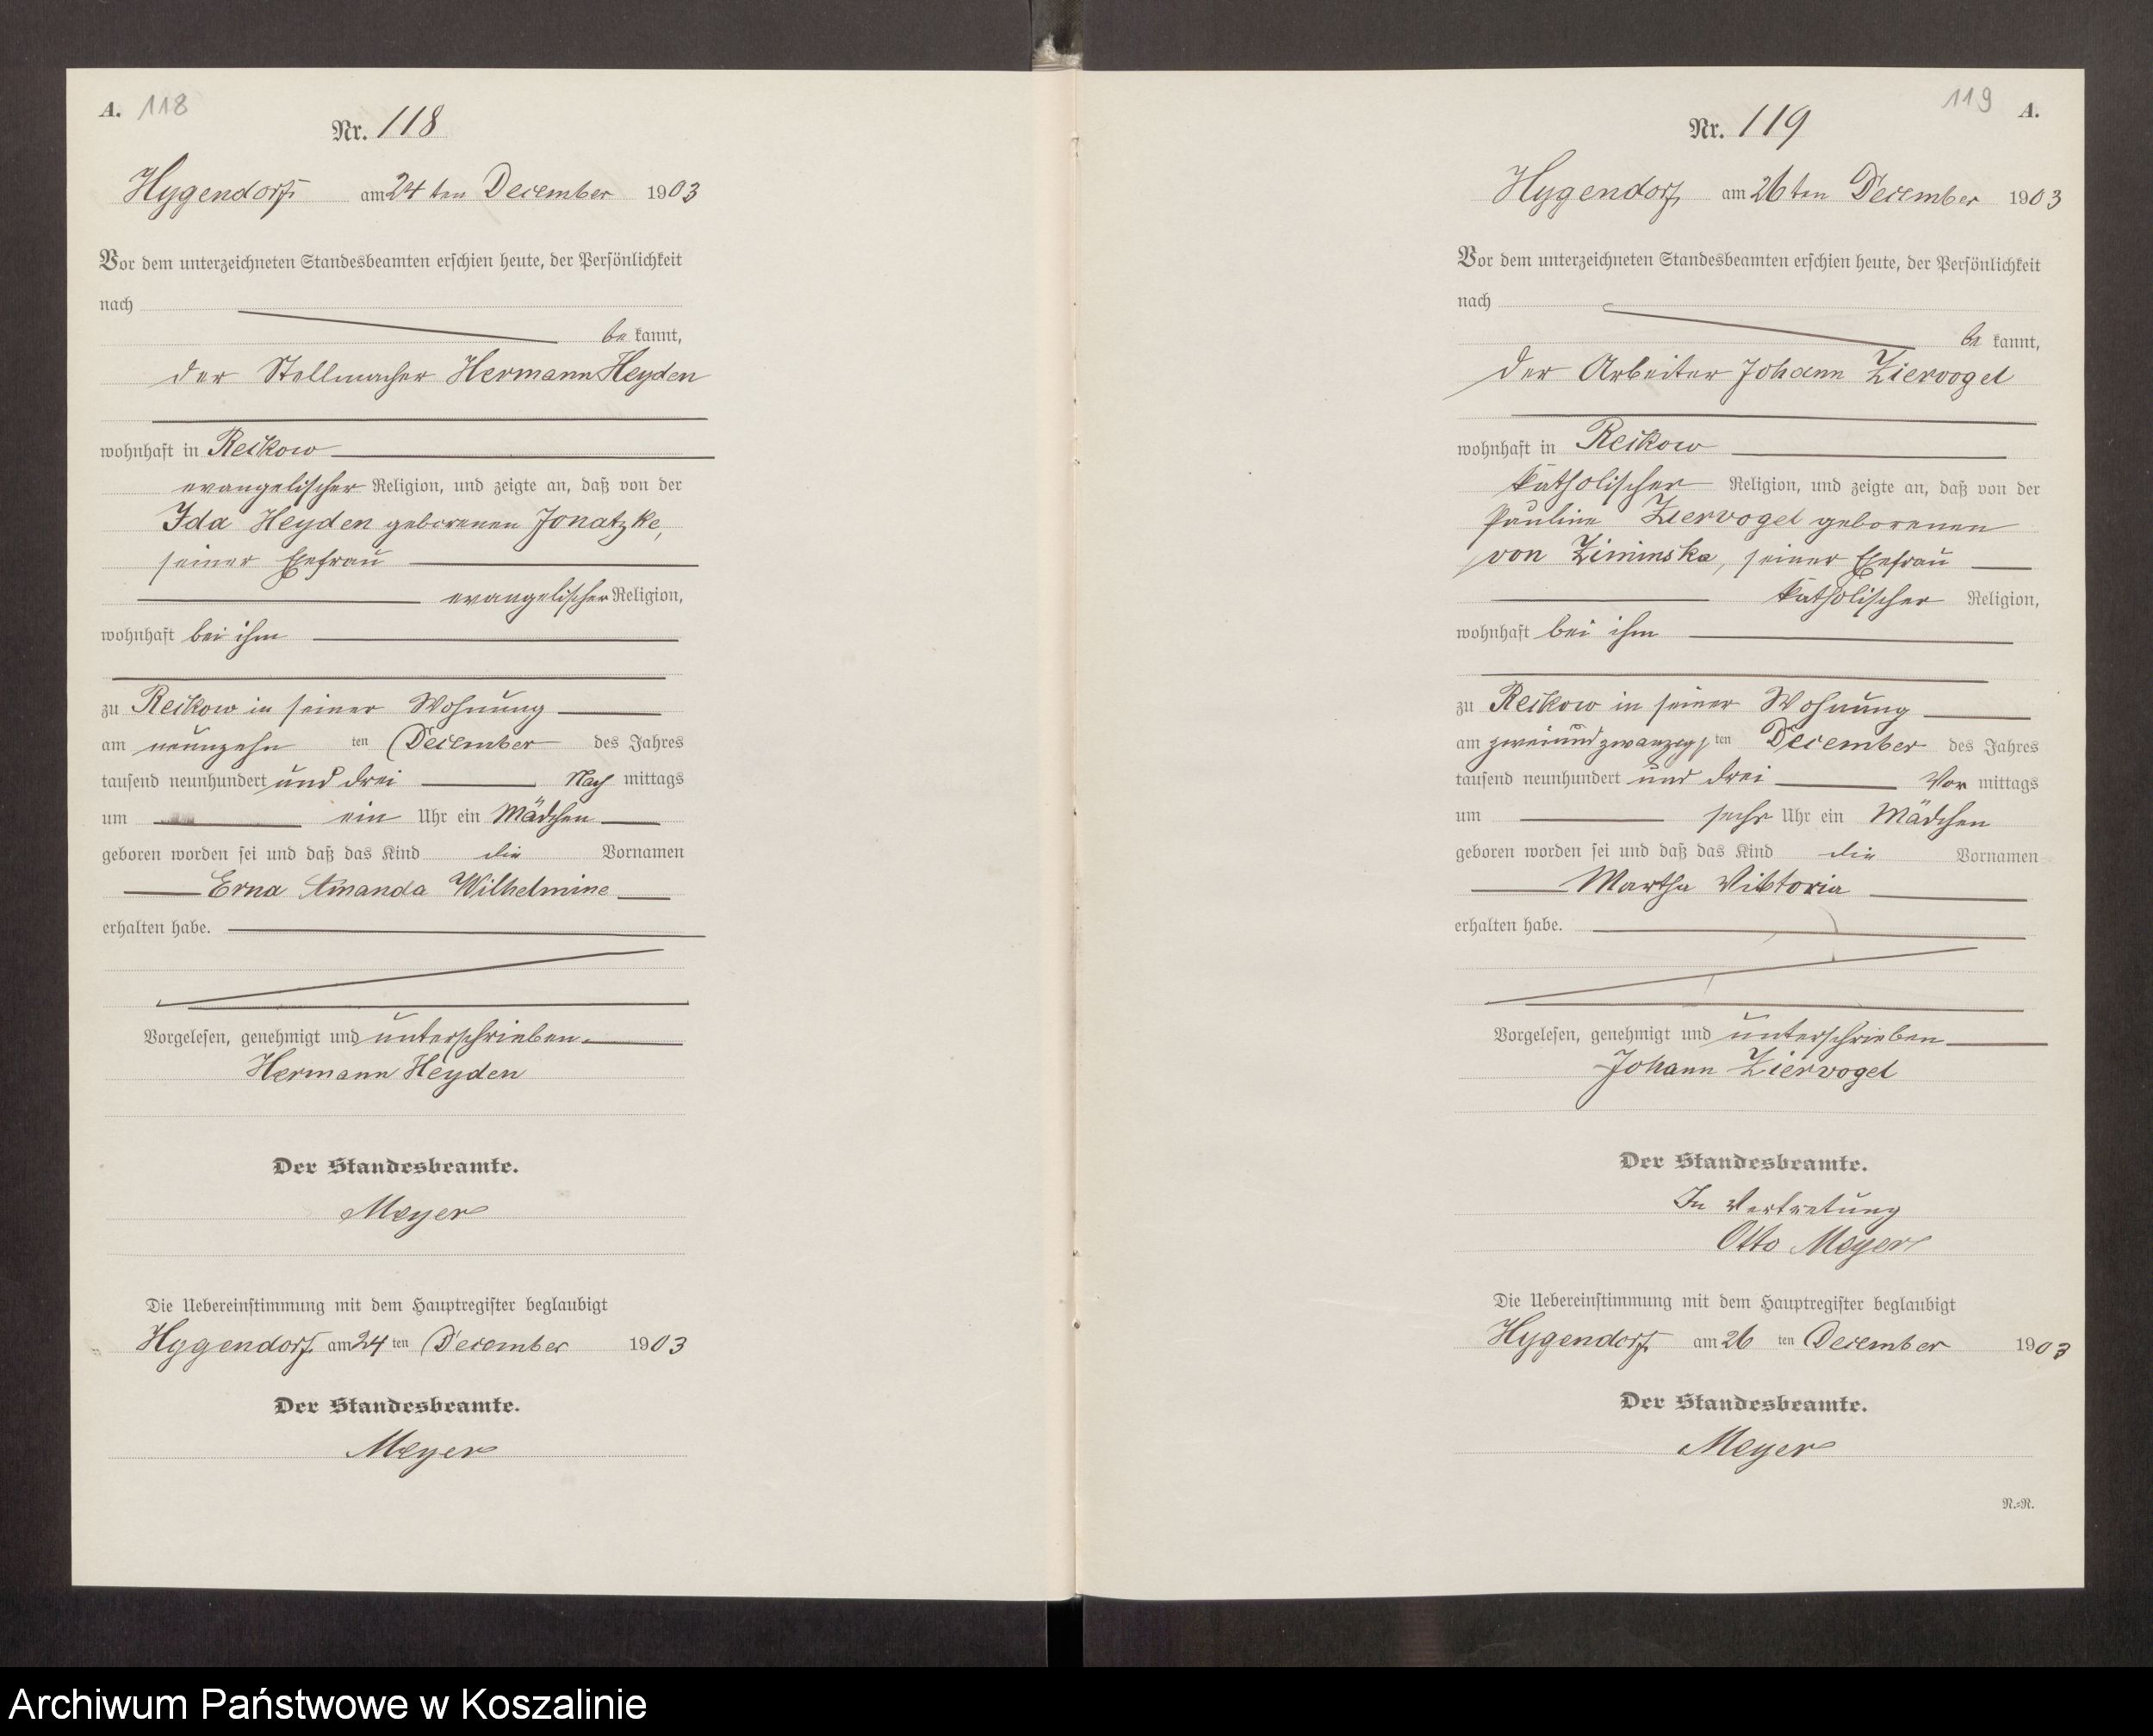 A. 118
Nr. 118
Hygendorf am 24 ten December 1903
Vor dem unterzeichneten Standesbeamten erschien heute, der Persönlichkeit
nach
be kannt,
der Stellmacher Hermann Heyden
wohnhaft in Reikow
evangelischer Religion, und zeigte an, daß von der
Ida Heyden geborenen Jonatzke,
seiner Ehefrau
evangelischer Religion,
wohnhaft bei ihm
zu Reikow in seiner Wohnung
am neunzehn ten December des Jahres
tausend neunhundert und drei Nach mittags
um ein Uhr ein Mädchen
geboren worden sei und daß das Kind die Vornamen
Erna Amanda Wilhelmine
erhalten habe.
Vorgelesen, genehmigt und unterschrieben.
Hermann Heyden
Der Standesbeamte.
Meyer
Die Uebereinstimmung mit dem Hauptregister beglaubigt
Hygendorf am 24 ten December 1903
Der Standesbeamte.
Meyer
119 A.
Nr. 119
Hygendorf am 26 ten December 1903
Vor dem unterzeichneten Standesbeamten erschien heute, der Persönlichkeit
nach
be kannt,
der Arbeiter Johann Ziervogel
wohnhaft in Reikow
katholischer Religion, und zeigte an, daß von der
Pauline Ziervogel geborenen
von Ziminska, seiner Ehefrau
katholischer Religion,
wohnhaft bei ihm
zu Reikow in seiner Wohnung
am zweiundzwanzig ten December des Jahres
tausend neunhundert und drei Vor mittags
um sechs Uhr ein Mädchen
geboren worden sei und daß das Kind die Vornamen
Martha Viktoria
erhalten habe.
Vorgelesen, genehmigt und unterschrieben
Johann Ziervogel
Der Standesbeamte.
In Vertretung
Otto Meyer
Die Uebereinstimmung mit dem Hauptregister beglaubigt
Hygendorf am 26 ten December 1903
Der Standesbeamte.
Meyer
N.-N.
Archiwum Państwowe w Koszalinie